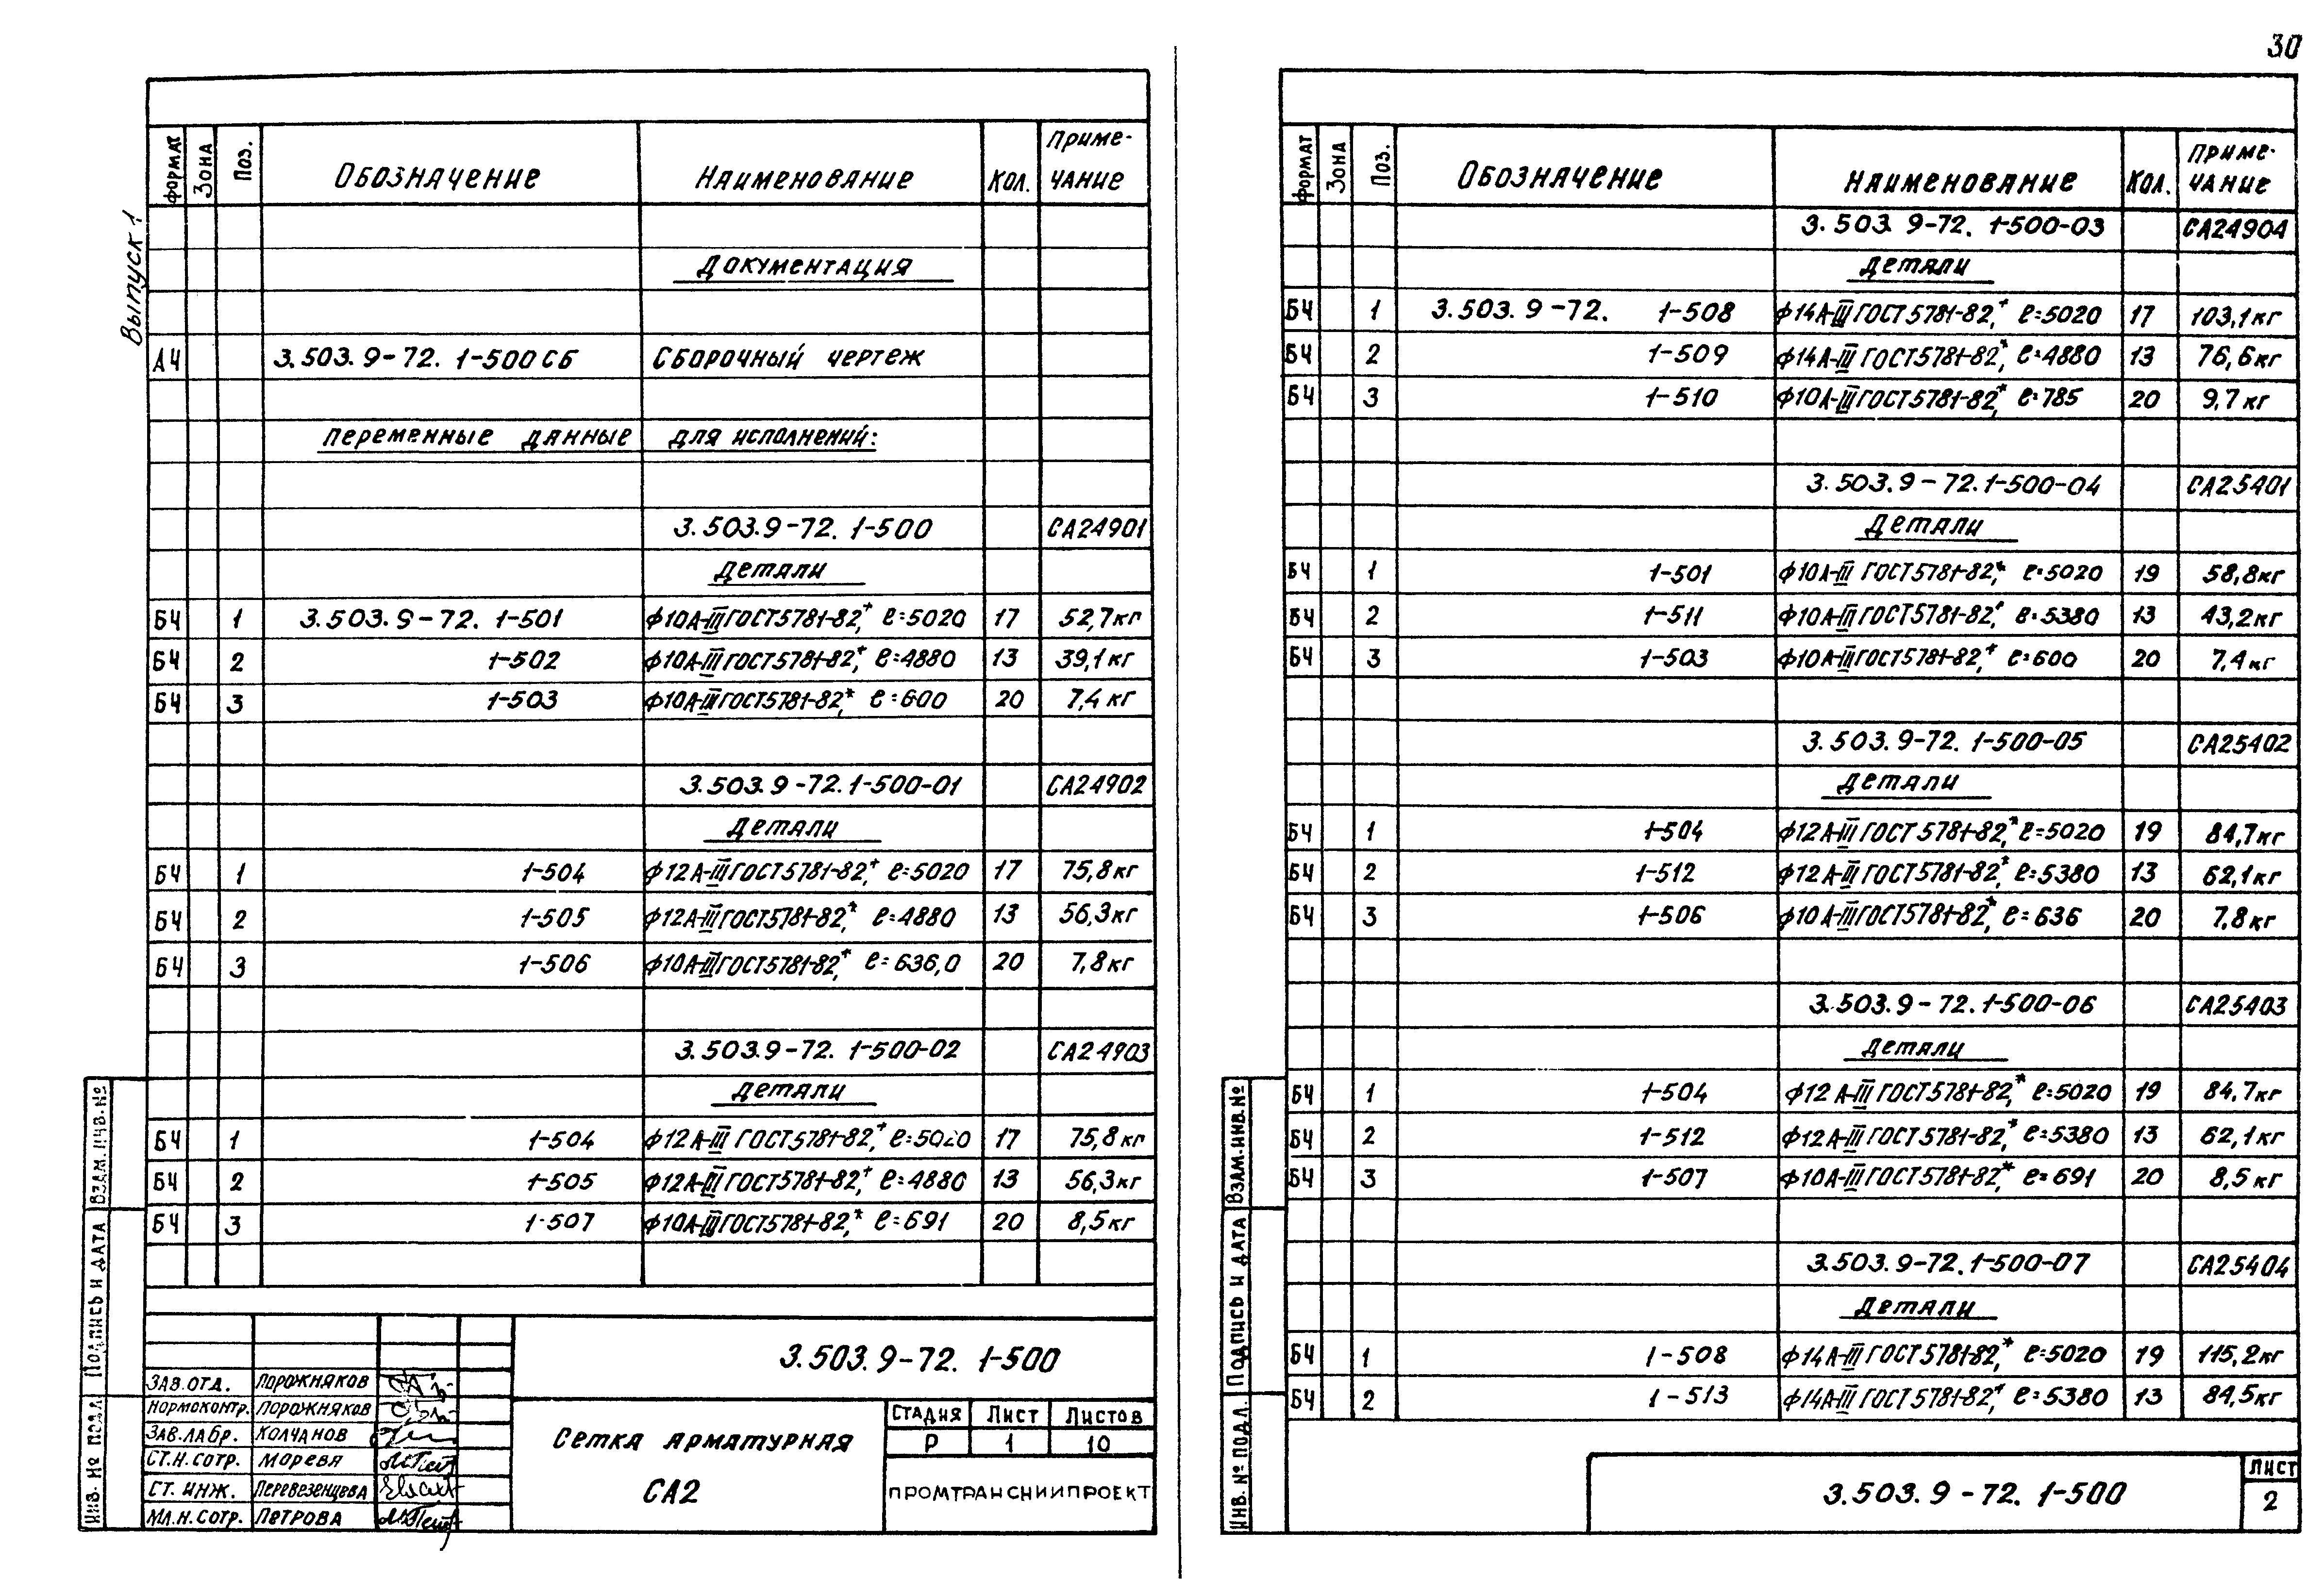 30
Выпуск 1
Формат Зона Поз. Обозначение Наименование Кол. Приме-
чание
Документация
А4 3.503.9-72. 1-500СБ Сборочный чертеж
Переменные данные для исполнений:
3.503.9-72. 1-500 СА24901
Детали
БЧ 1 3.503.9-72. 1-501 ф10А-III ГОСТ5781-82,* ℓ=5020 17 52,7кг
БЧ 2 1-502 ф10А-III ГОСТ5781-82,* ℓ=4880 13 39,1кг
БЧ 3 1-503 ф10А-III ГОСТ5781-82,* ℓ=600 20 7,4кг
3.503.9-72. 1-500-01 СА24902
Детали
БЧ 1 1-504 ф12А-III ГОСТ5781-82,* ℓ=5020 17 75,8кг
БЧ 2 1-505 ф12А-III ГОСТ5781-82,* ℓ=4880 13 56,3кг
БЧ 3 1-506 ф10А-III ГОСТ5781-82,* ℓ=636,0 20 7,8кг
3.503.9-72. 1-500-02 СА24903
Детали
БЧ 1 1-504 ф12А-III ГОСТ5781-82,* ℓ=5020 17 75,8кг
БЧ 2 1-505 ф12А-III ГОСТ5781-82,* ℓ=4880 13 56,3кг
БЧ 3 1-507 ф10А-III ГОСТ5781-82,* ℓ=691 20 8,5кг
Инв. № подл. Подпись и дата Взам.инв.№
3.503.9-72. 1-500
Зав.отд. Порожняков
Нормоконтр. Порожняков
Зав.лабр. Колчанов
Ст.н.сотр. Морева
Ст. инж. Перевезенцева
Мл.н.сотр. Петрова
Сетка арматурная
СА2
Стадия Лист Листов
Р 1 10
ПРОМТРАНСНИИПРОЕКТ
Формат Зона Поз. Обозначение Наименование Кол. Приме-
чание
3.503.9-72. 1-500-03 СА24904
Детали
БЧ 1 3.503.9-72. 1-508 ф14А-III ГОСТ5781-82,* ℓ=5020 17 103,1кг
БЧ 2 1-509 ф14А-III ГОСТ5781-82,* ℓ=4880 13 76,6кг
БЧ 3 1-510 ф10А-III ГОСТ5781-82,* ℓ=785 20 9,7кг
3.503.9-72. 1-500-04 СА25401
Детали
БЧ 1 1-501 ф10А-III ГОСТ5781-82,* ℓ=5020 19 58,8кг
БЧ 2 1-511 ф10А-III ГОСТ5781-82,* ℓ=5380 13 43,2кг
БЧ 3 1-503 ф10А-III ГОСТ5781-82,* ℓ=600 20 7,4кг
3.503.9-72. 1-500-05 СА25402
Детали
БЧ 1 1-504 ф12А-III ГОСТ5781-82,* ℓ=5020 19 84,7кг
БЧ 2 1-512 ф12А-III ГОСТ5781-82,* ℓ=5380 13 62,1кг
БЧ 3 1-506 ф10А-III ГОСТ5781-82,* ℓ=636 20 7,8кг
3.503.9-72. 1-500-06 СА25403
Детали
БЧ 1 1-504 ф12А-III ГОСТ5781-82,* ℓ=5020 19 84,7кг
БЧ 2 1-512 ф12А-III ГОСТ5781-82,* ℓ=5380 13 62,1кг
БЧ 3 1-507 ф10А-III ГОСТ5781-82,* ℓ=691 20 8,5кг
3.503.9-72. 1-500-07 СА25404
Детали
БЧ 1 1-508 ф14А-III ГОСТ5781-82,* ℓ=5020 19 115,2кг
БЧ 2 1-513 ф14А-III ГОСТ5781-82,* ℓ=5380 13 84,5кг
Инв. № подл. Подпись и дата Взам.инв.№
3.503.9-72. 1-500
Лист
2